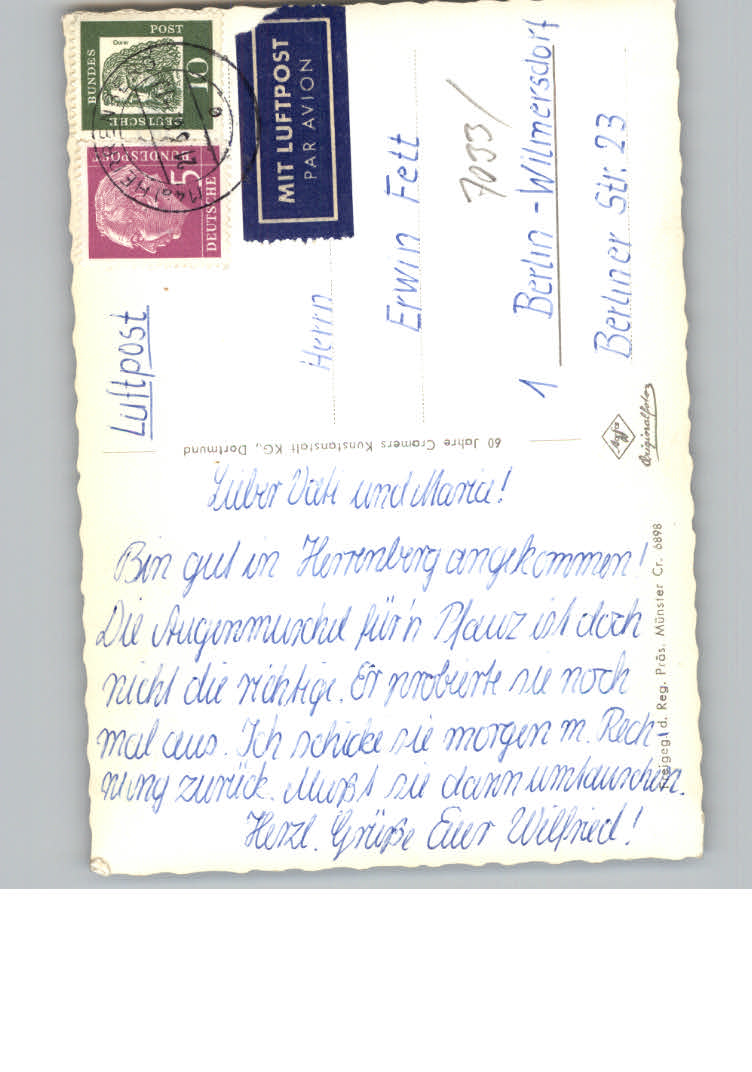 Lieber Vati und Maria!
Bin gut in Herrenberg angekommen!
Die Augenmuschel für'n Pfauz ist doch
nicht die richtige. Er probierte sie noch
mal aus. Ich schicke sie morgen m. Rech-
nung zurück. Mußt sie dann umtauschen.
Herzl. Grüße Euer Wilfried!
Luftpost
Herrn
Erwin Fett
7033/
1 Berlin-Wilmersdorf
Berliner Str. 23
MIT LUFTPOST
PAR AVION
DEUTSCHE
BUNDES
POST
Dürer
10
DEUTSCHE
BUNDESPOST
5
60 Jahre Cramers Kunstanstalt KG., Dortmund
Agfa
Originalfoto
Freigeg. d. Reg. Präs. Münster Cr. 6898